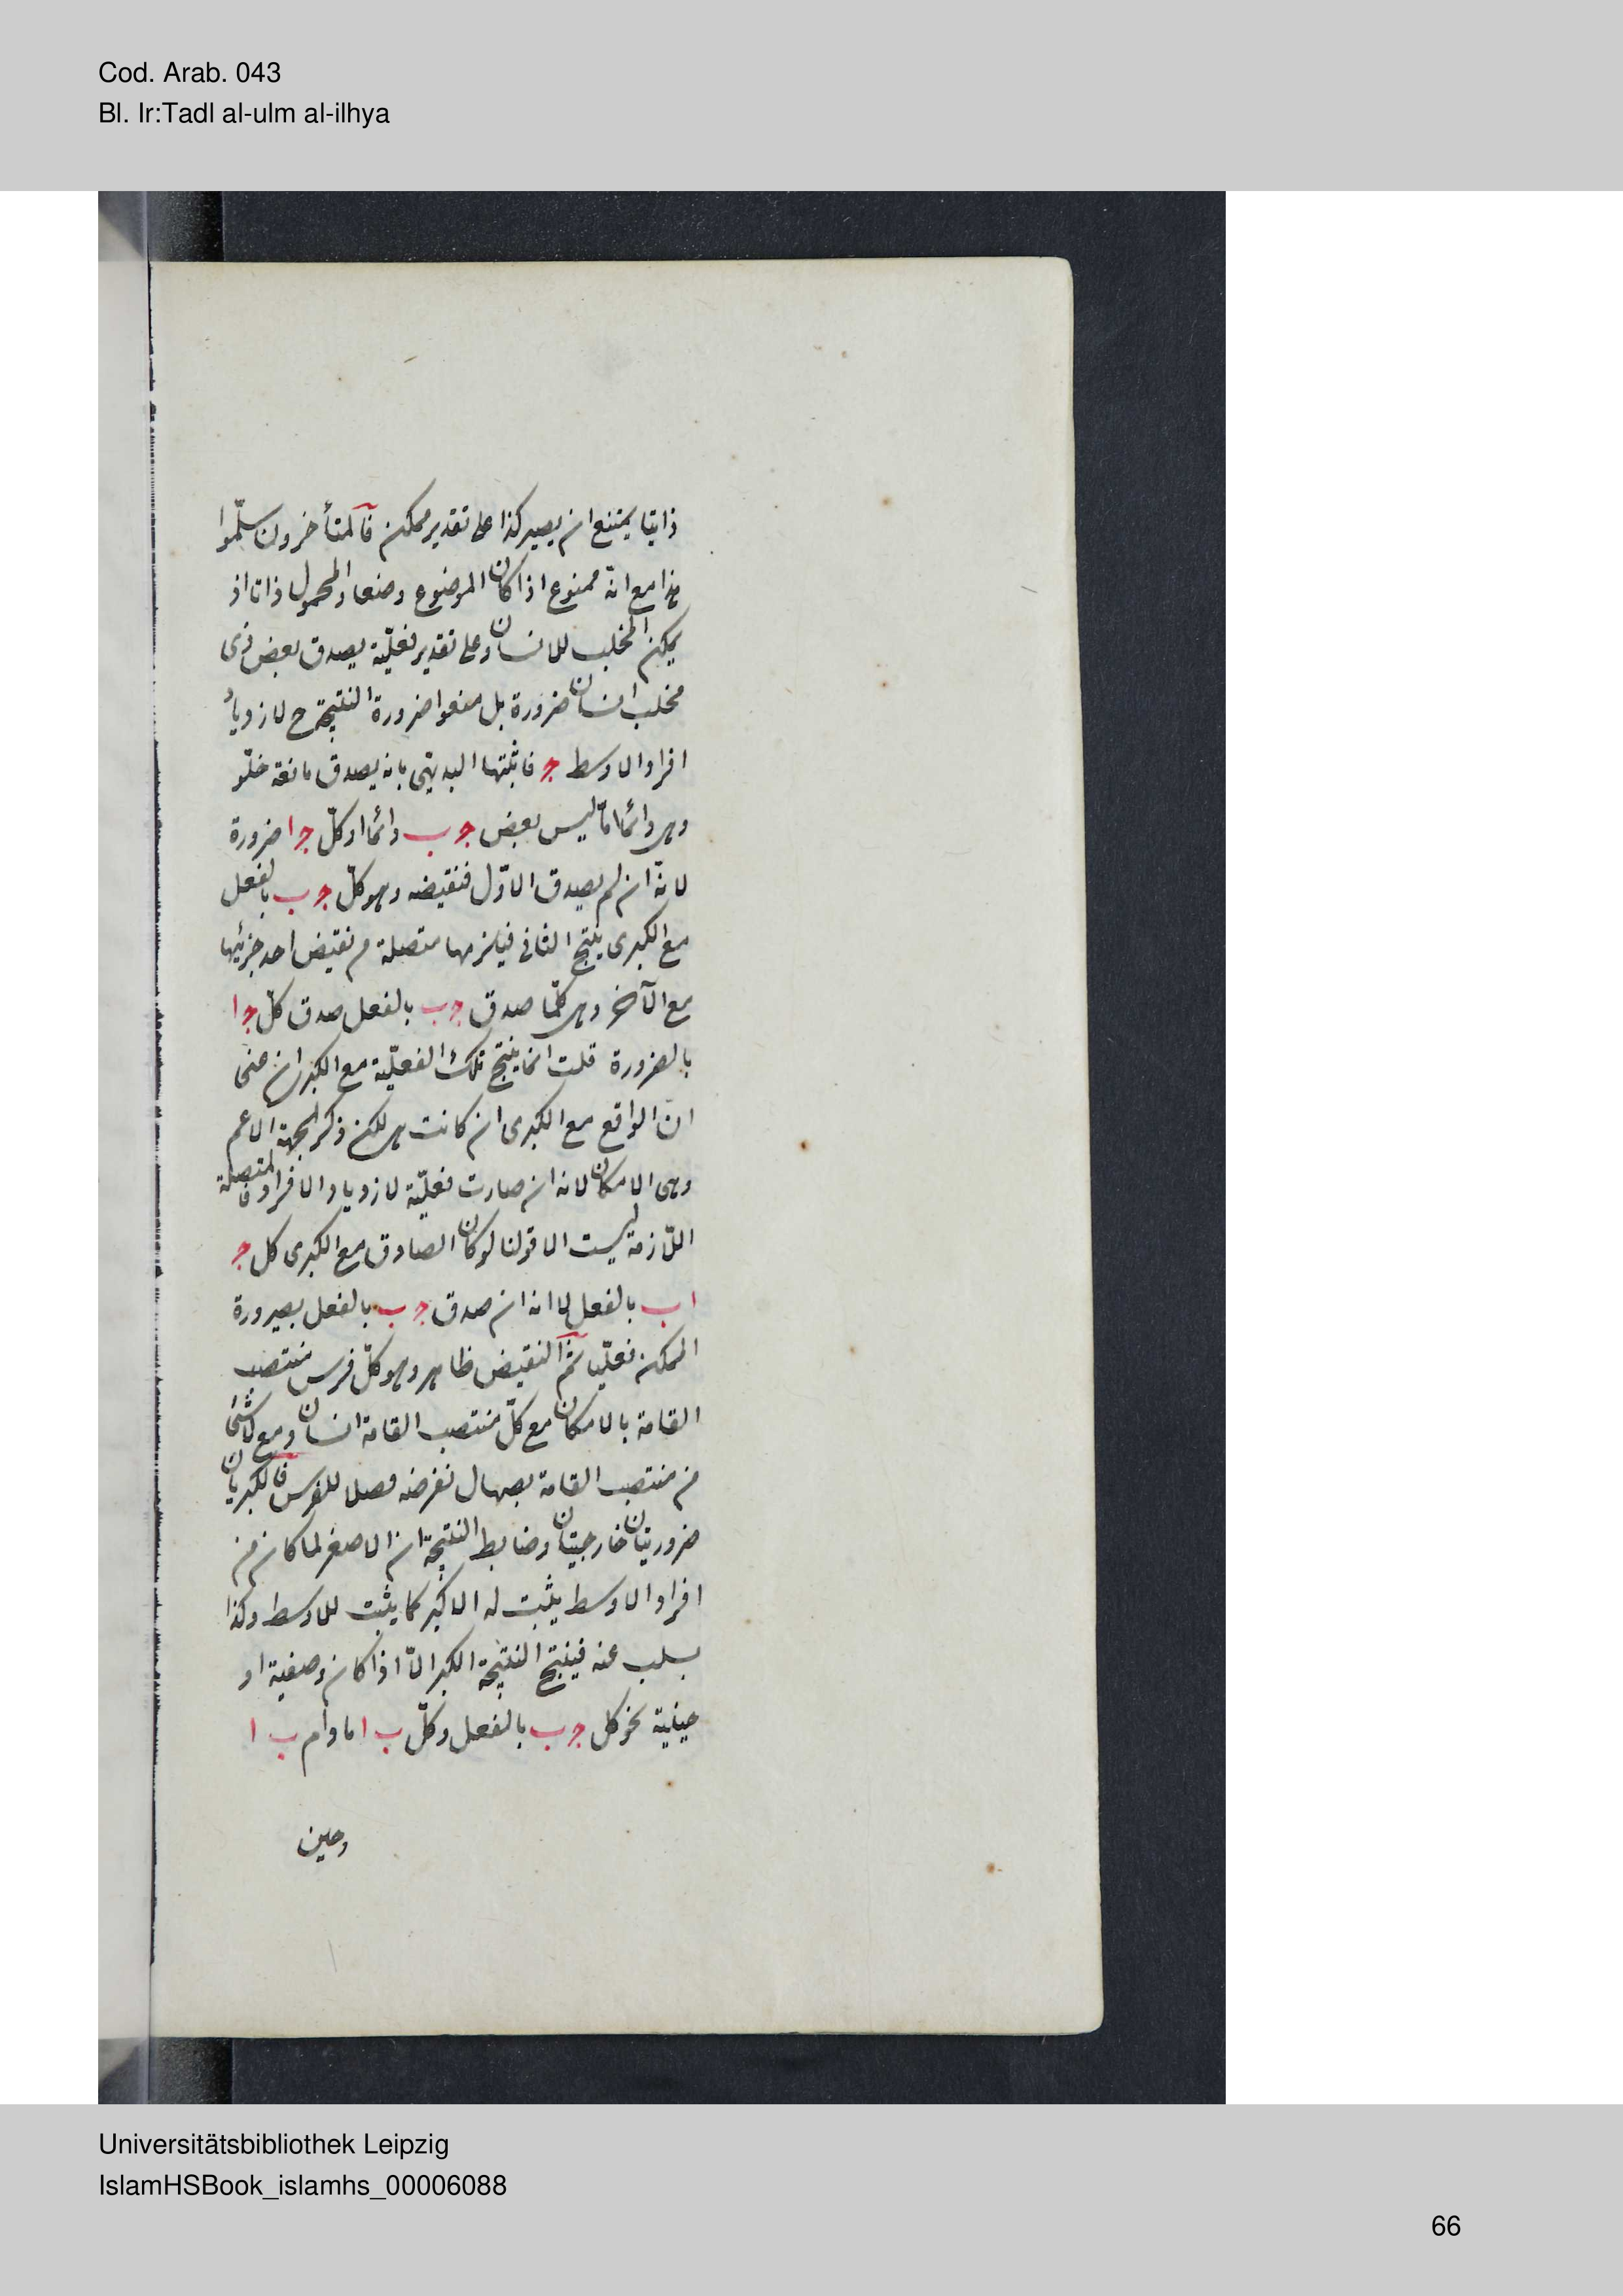 Cod. Arab. 043
Bl. Ir:Tadl al-ulm al-ilhya
ذاتيا يمتنع ان يصير كذا على تقدير ممكن فالمتأخرون سلّموا
هذا مع انّه ممنوع اذا كان الموضوع وصفا والمحمول ذاتا اذ
يمكن المخلب للانسان وعلى تقدير فعليّة يصدق بعض ذى
مخلب انسان ضرورة بل منعوا ضرورة النتيجة ح لازدياد
افراد الاوسط ج فاثبتها البديهى بانه يصدق مانعة خلّو
وهى دائما امّا ليس بعض ج ب دائما او كلّ ج ا ضرورة
لانّه ان لم يصدق الاوّل فنقيضه وهو كلّ ج ب بالفعل
مع الكبرى ينتج الثانى فيلزمها متصلة من نقيض احد جزئيها
مع الآخر وهى كلّما صدق ج ب بالفعل صدق كلّ ج ا
بالضرورة قلت انما ينتج تلك الفعليّة مع الكبرى ان
انّ الواقع مع الكبرى ان كانت هى لكن ذكر الجهة الاعم
وهى الامكان لانه ان صارت فعليّة لازدياد الافراد فالمتصلة
اللّازمة ليست الا قولنا لو كان الصادق مع الكبرى كل ج
ا ب بالفعل لا انه ان صدق ج ب بالفعل بصيرورة
الممكن فعليّا ثمّ النقيض ظاهر وهو كلّ فرس منتصب
القامة بالامكان مع كلّ منتصب القامة انسان ومع لا شئ
من منتصب القامة بصهال نفرضه فصلا للفرس فالكبريان
ضروريتان خارجيتان وضابط النتيجة ان الاصغر لما كان من
افراد الاوسط يثبت له الاكبر كما يثبت للاوسط وكذا
يسلب عنه فينتج النتيجة الكبرى الّا اذا كان وصفية او
حينية نحو كل ج ب بالفعل وكلّ ب ا مادام ب ا
وحين
Universitätsbibliothek Leipzig
IslamHSBook_islamhs_00006088
66